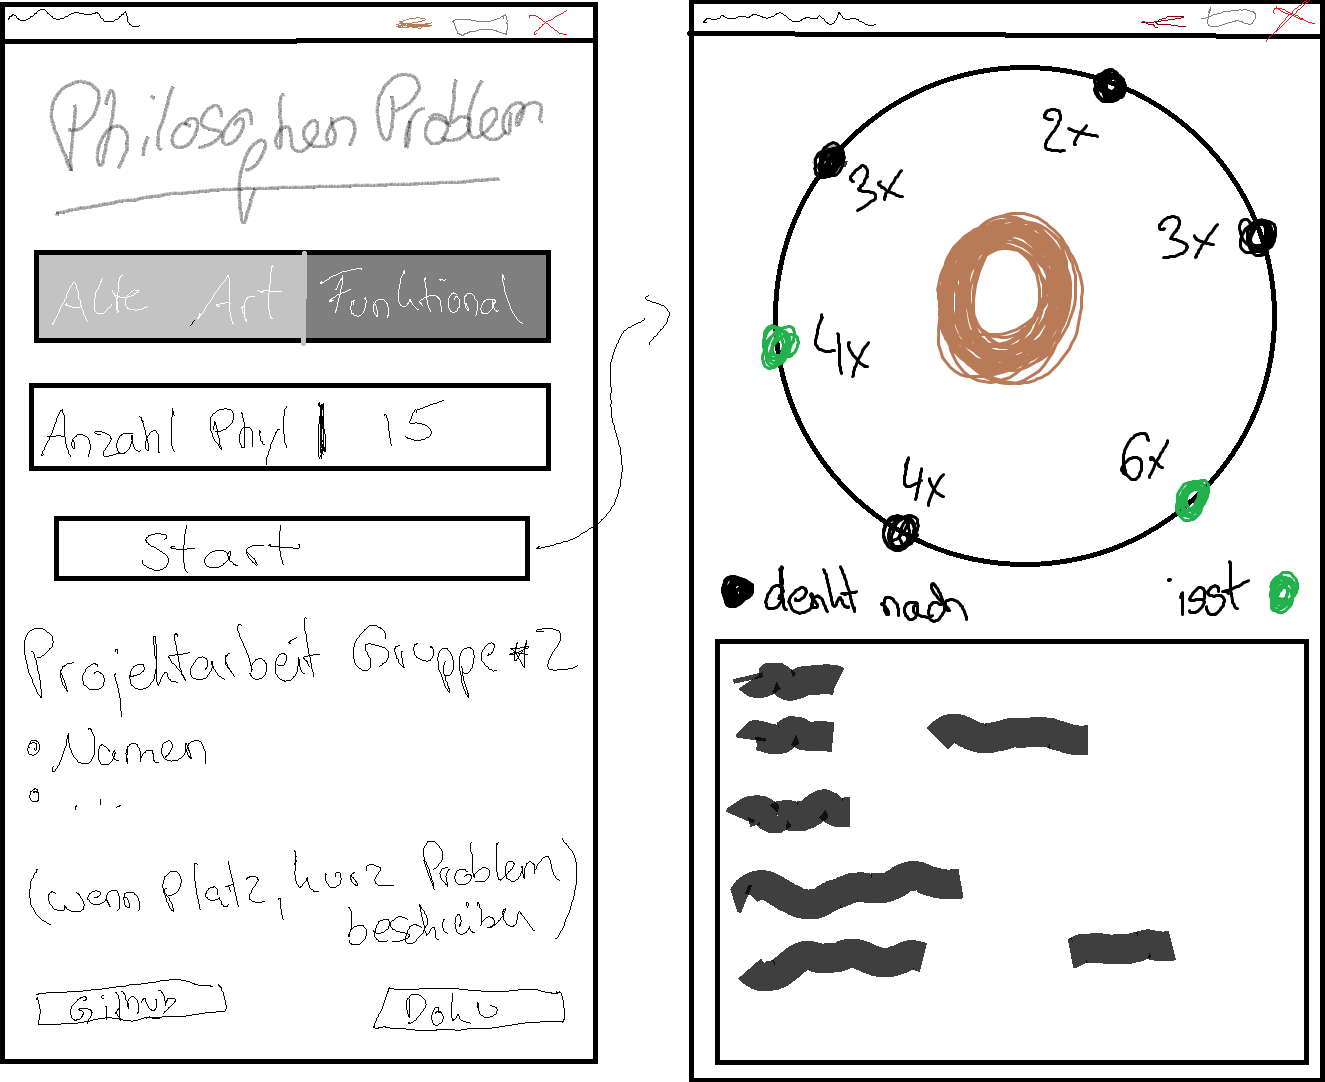 Philosophen Problem
Alte Art Funktional
Anzahl Phyl | 15
Start
Projektarbeit Gruppe #2
Namen
...
(wenn Platz, kurz Problem
beschreiben)
Github Doku
2x
3x
3x
4x
6x
4x
denkt nach isst